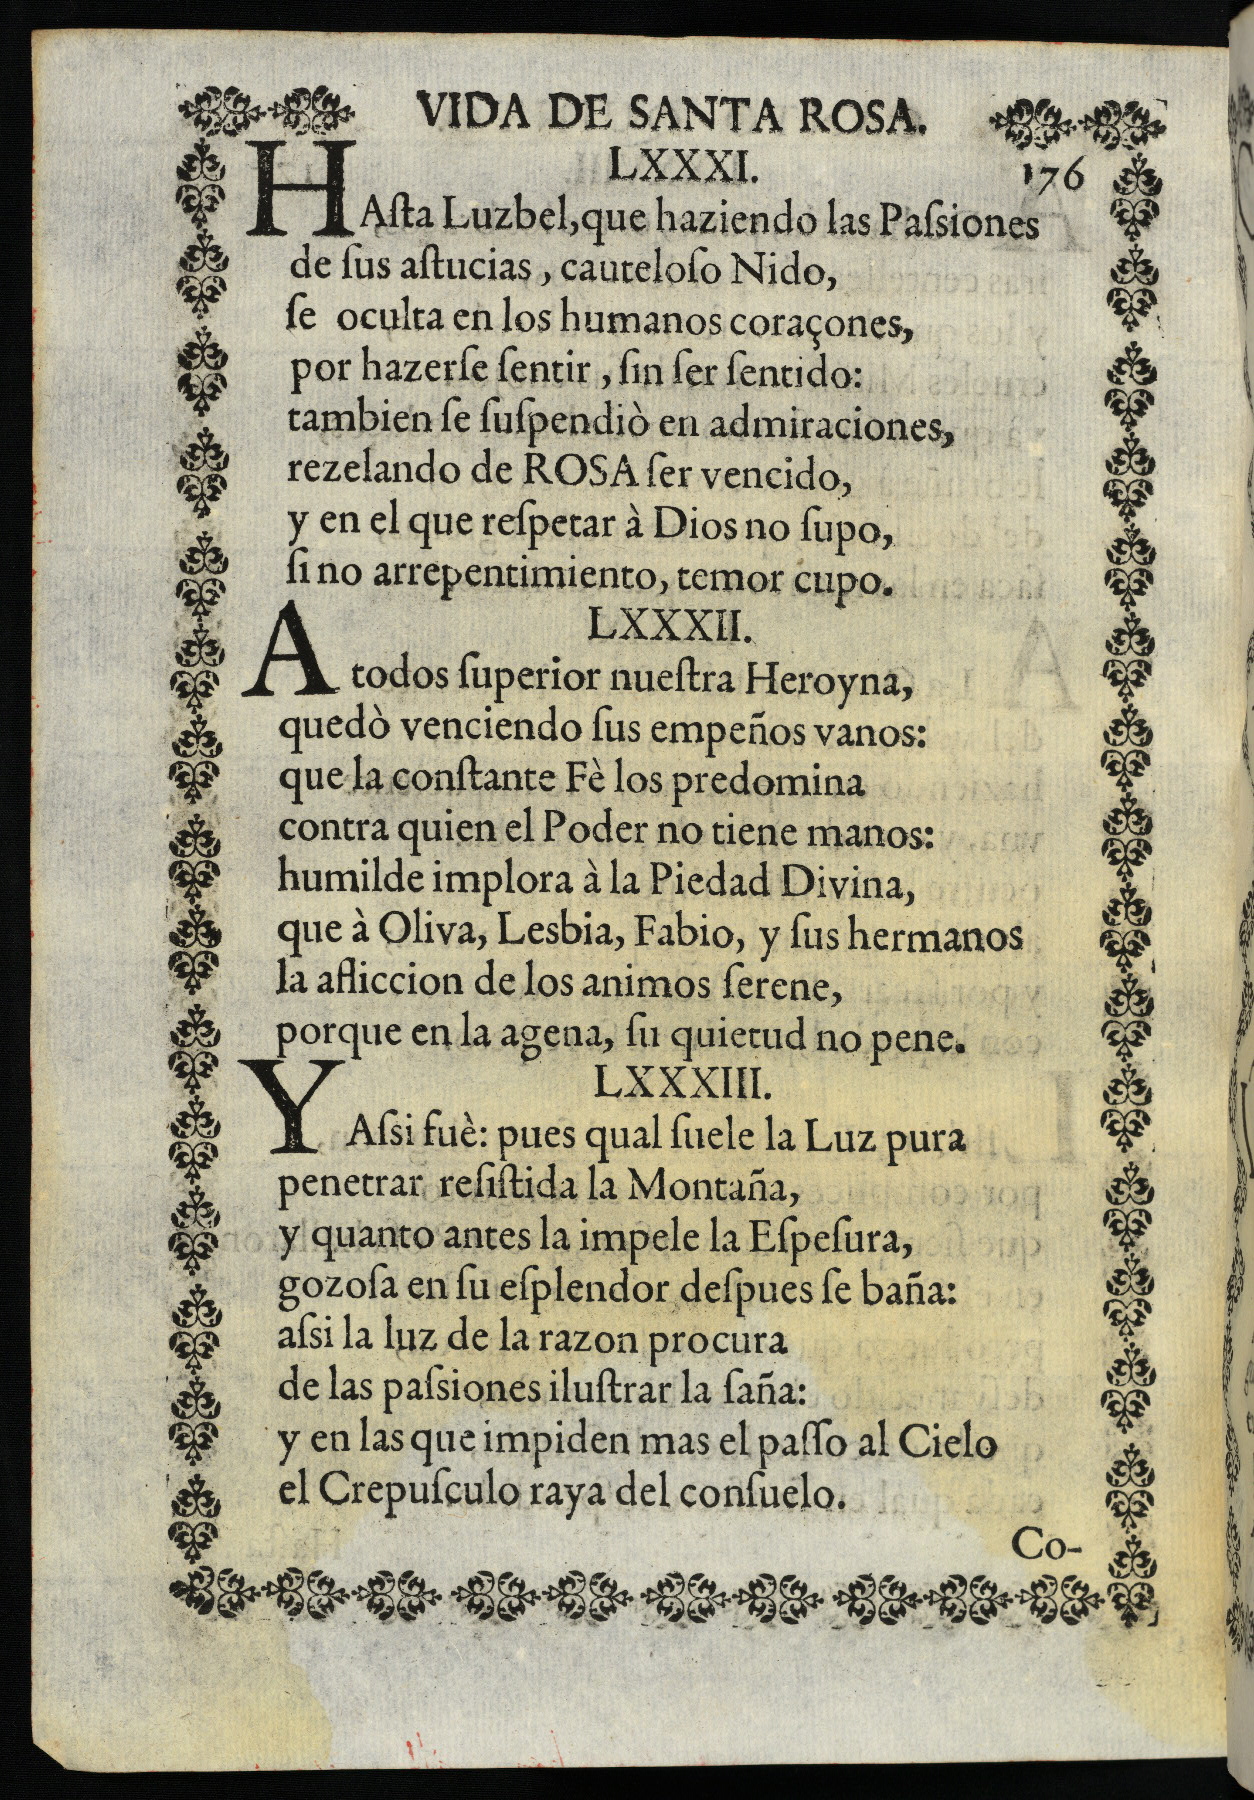 VIDA DE SANTA ROSA.
LXXXI.
176
HAſta Luzbel,que haziendo las Paſsiones
de ſus aſtucias, cauteloſo Nido,
ſe oculta en los humanos coraçones,
por hazerſe ſentir, ſin ſer ſentido:
tambien ſe ſuſpendiò en admiraciones,
rezelando de ROSA ſer vencido,
y en el que reſpetar à Dios no ſupo,
ſi no arrepentimiento, temor cupo.
LXXXII.
A todos ſuperior nueſtra Heroyna,
quedò venciendo ſus empeños vanos:
que la conſtante Fè los predomina
contra quien el Poder no tiene manos:
humilde implora à la Piedad Divina,
que à Oliva, Lesbia, Fabio, y ſus hermanos
la afliccion de los animos ſerene,
porque en la agena, ſu quietud no pene.
LXXXIII.
Y Aſsi fuè: pues qual ſuele la Luz pura
penetrar reſiſtida la Montaña,
y quanto antes la impele la Eſpeſura,
gozoſa en ſu eſplendor deſpues ſe baña:
aſsi la luz de la razon procura
de las paſsiones iluſtrar la ſaña:
y en las que impiden mas el paſſo al Cielo
el Crepuſculo raya del conſuelo.
Co-